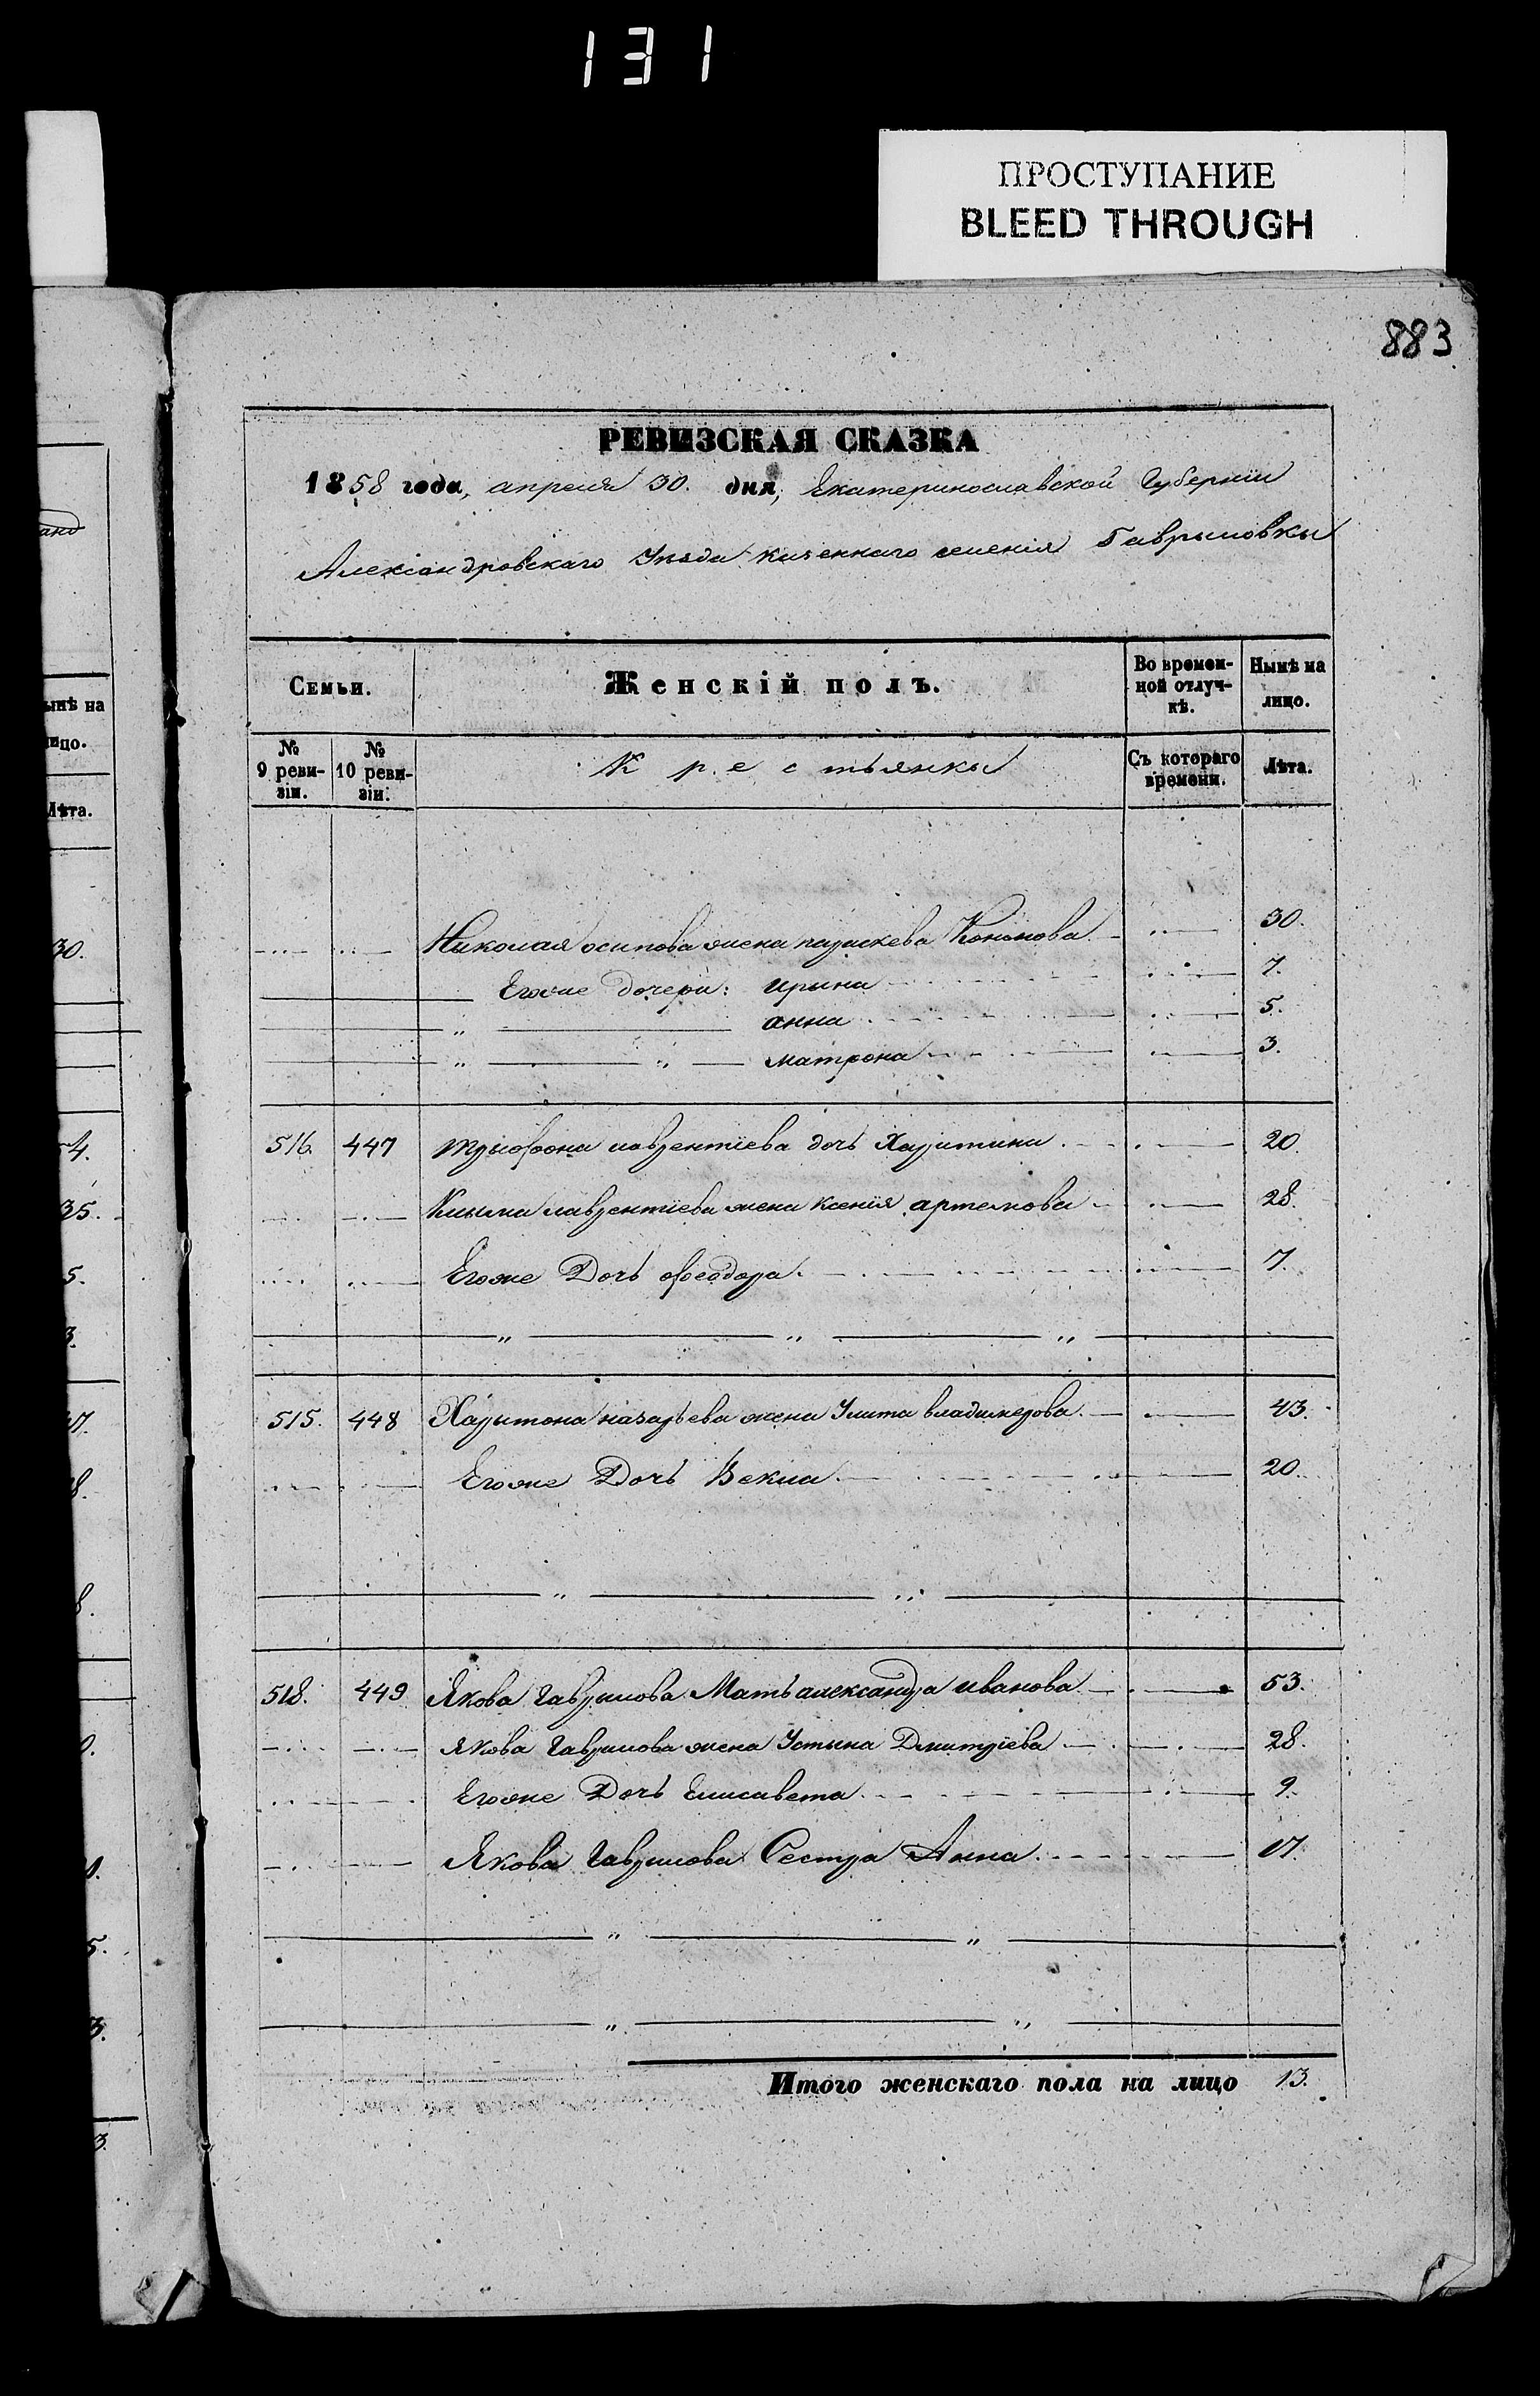 131
ПРОСТУПАНИЕ
BLEED THROUGH
883
РЕВИЗСКАЯ СКАЗКА
1858 года, апреля 30. дня, Екатеринославской Губерніи
Алексіандровскаго Уезда казеннаго селенія Гаврыловкы
Семьи.
Женскій полъ.
Во времен-
ной отлуч-
кѣ.
Нынѣ на
лицо.
№
9 реви-
зіи.
№
10 реви-
зіи.
Крестьянкы
Съ котораго
времени.
Лѣта.
Николая осипова жена параскева Кононова 30.
Егоже дочери: ирына 7.
" анна 5.
" " матрона 3.
516. 447 трыофона лаврентіева дочь Харитина 20.
Клыма лаврентіева жена ксенія артемова 28.
Егоже Дочь офеодора. 7.
" " "
515. 448 Харытона назарьева жена Улита владимерова 43.
Егоже Дочь Векла 20.
" "
518. 449 Якова гаврилова Мать александра иванова 53.
якова гаврилова жена Устина Дмитріева 28.
Егоже Дочь Елисавета 9.
Якова гаврилова Сестра Анна. 17.
" "
" "
Итого женскаго пола на лицо 13.
анд
ынѣ на
ицо.
Лѣта.
30.
54.
35.
5.
3.